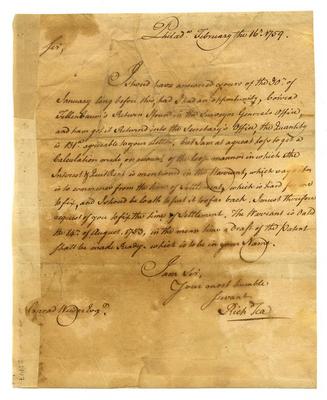 Philada. February the 16th. 1759.
Sir,
I should have answered yours of the 30th. of
January long before this, had I had an opportunity, Conrad
Return in the Surveyor Generals Office,
and it Returned into the Secretary's Office, the Quantity
is agreeable to your Letter, but I am at a great loss to get a
Calculation made, on account of the loose manner in which the
Interest & Quitrent is mentioned in the Warrant, which says it
is to commence from the time of Settlement, which is hard for me
to fix, and I should be loath to put it too far back. I must therefore
request of you to fix the time of Settlement. The Warrant is dated
the 14th. of August, 1753, in the mean time a draft of the Patent
shall be made Ready. which is to be in your Name.
I am Sir,
Your most humble
Servant
Richd. Tea
Conrad Weiser Esqr.